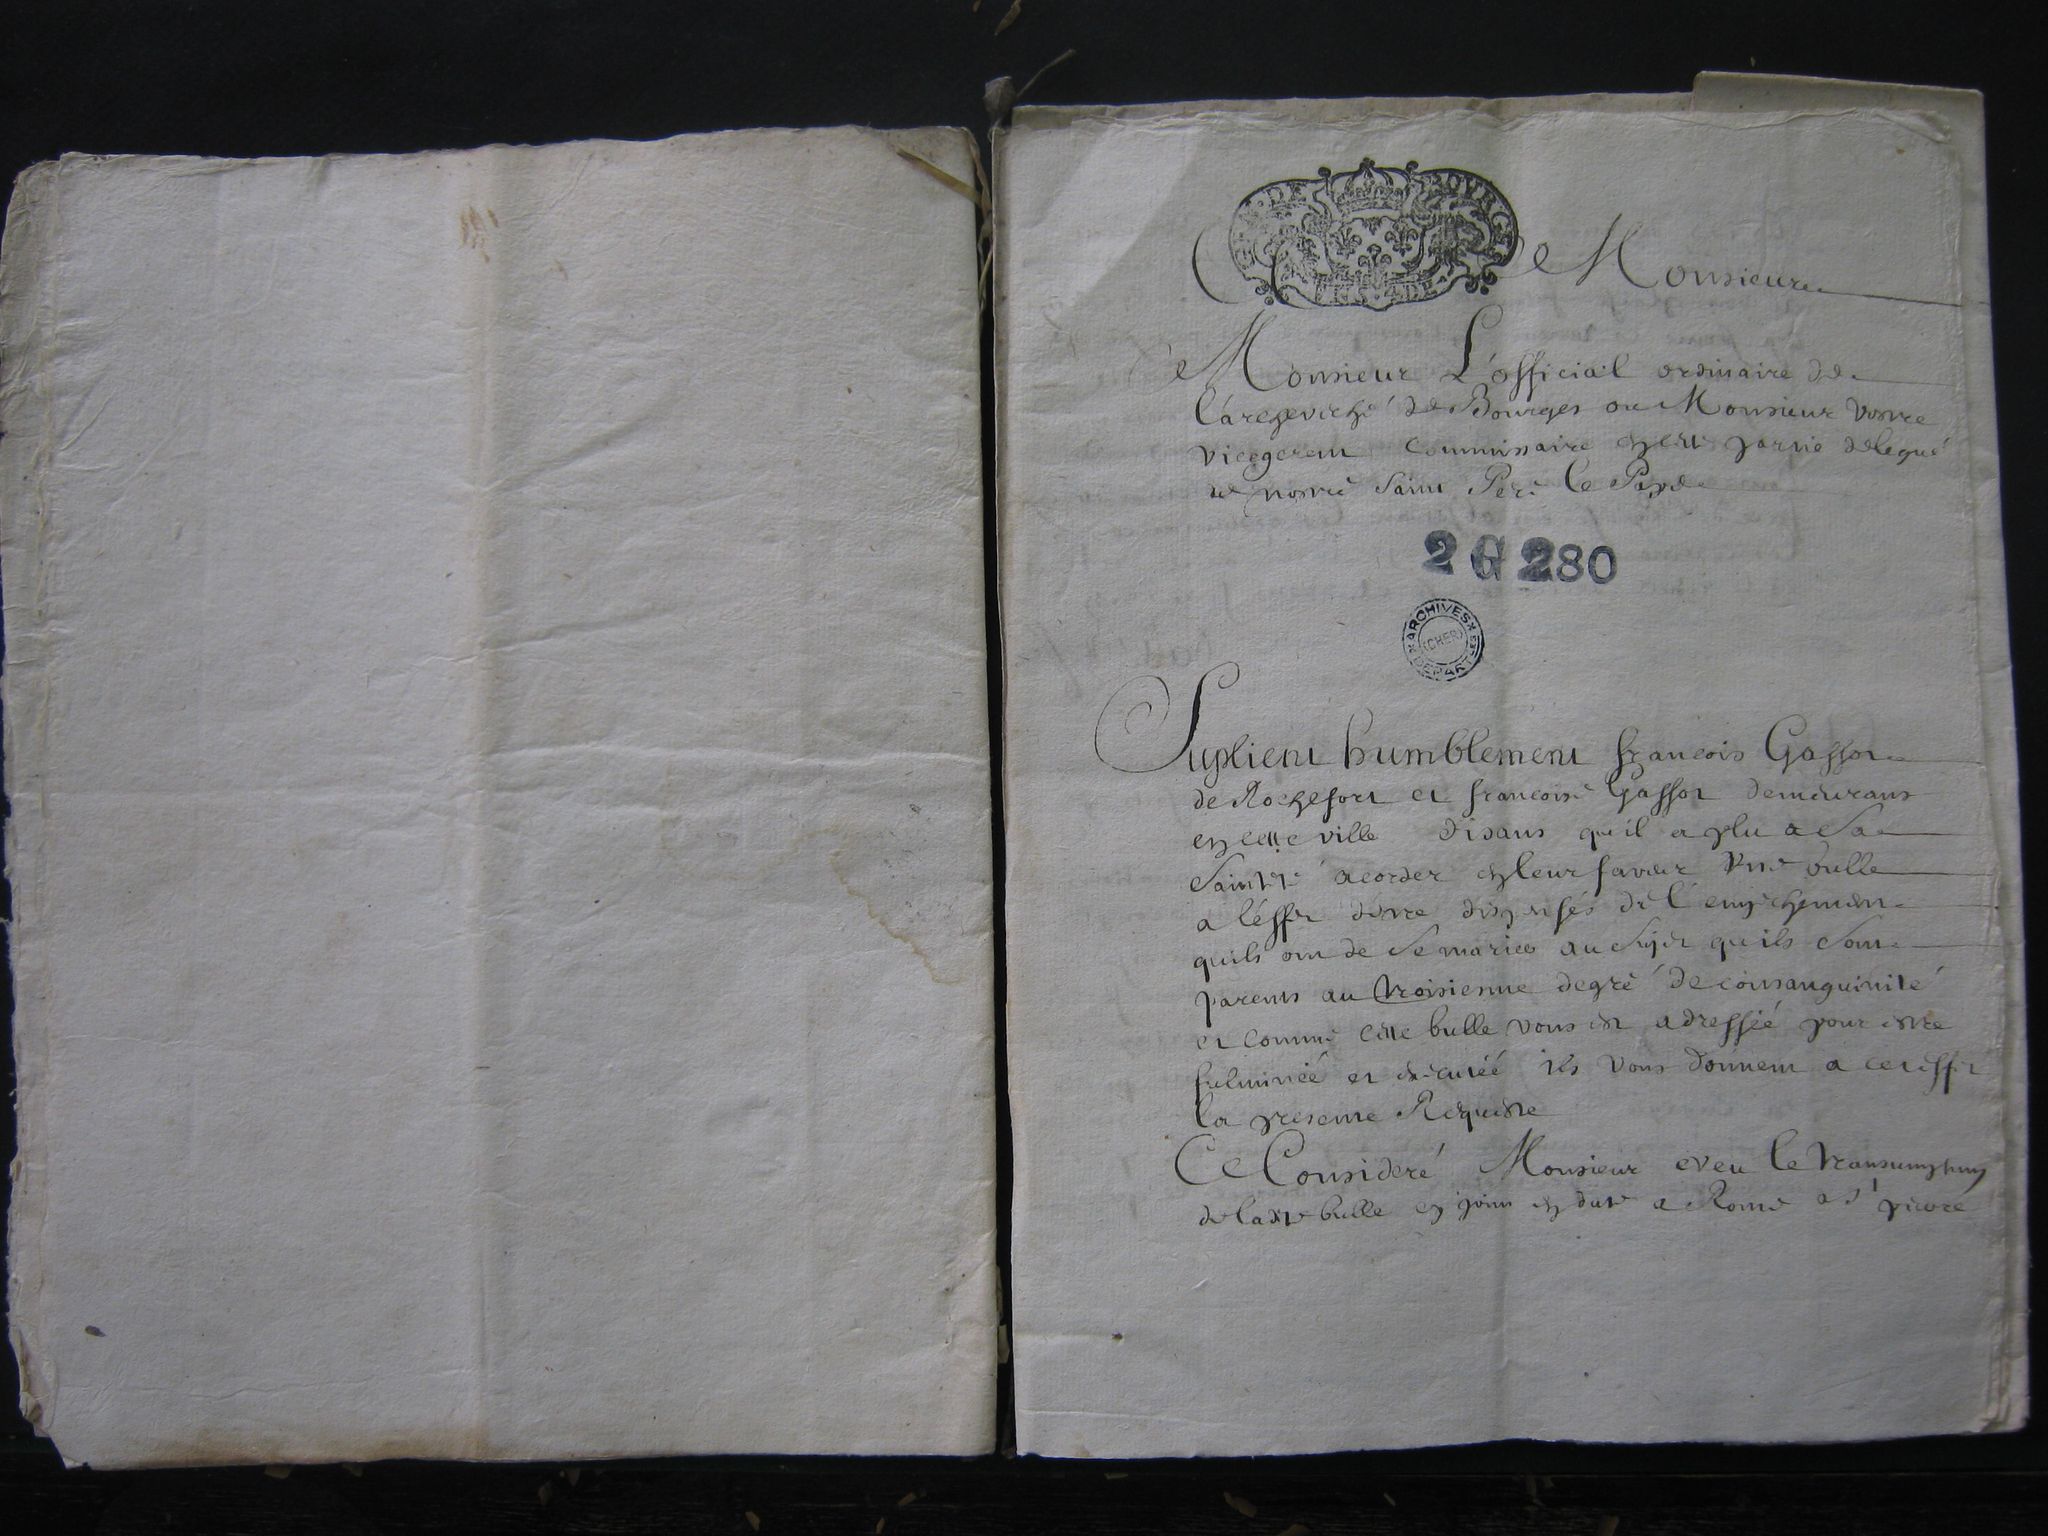 GEN. DE BOVRGES
Monsieur
Monsieur L'official ordinaire de
l'archeveché de Bourges ou Monsieur vostre
vicegerent commissaire en cette partie delegué
de nostre Saint Pere le Pape
2 G 280
ARCHIVES DEPARTles
(CHER)
Suplient humblement françois Gassot
de Rochefort et françoise Gassot demeurans
en cette ville disans qu'il a plu a Sa
Sainteté acorder en leur faveur Une bulle
a l'éffet d'estre dispensés de l'empechement
quils ont de Se marier au Sujet qu'ils Sont
parents au troisiesme degré de consanguinité
et comme cette bulle vous est adressée pour estre
fulminée et executée ils vous donnent a cet effet
la presente Requeste
Ce Consideré Monsieur et veu le transumptum
de la dte bulle cy joint en date a Rome a St pierre